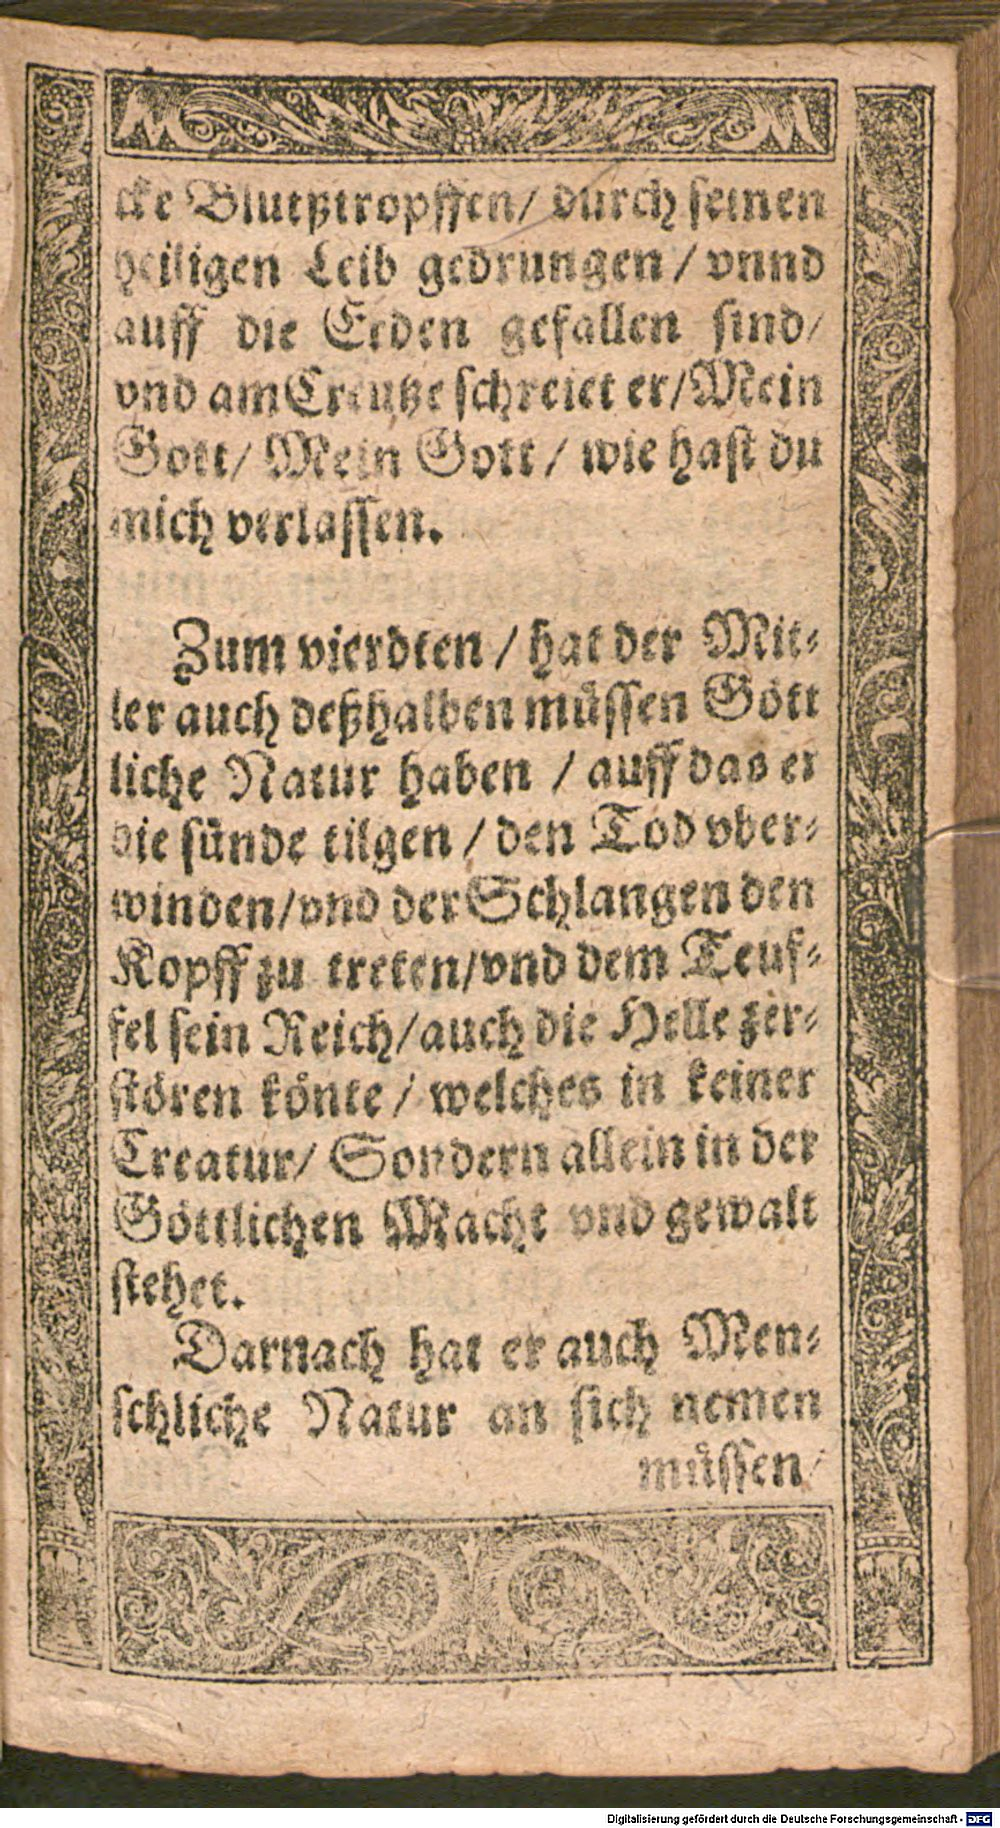 cke Blutßtropffen/ durch seinen
heiligen Leib gedrungen / vnnd
auff die Erden gefallen sind/
vnd am Creutze schreiet er/ Mein
Gott/ Mein Gott / wie hast du
mich verlassen.
Zum vierdten / hat der Mit-
ler auch deßhalben müssen Gött
liche Natur haben / auff das er
die sünde tilgen / den Tod vber-
winden/vnd der Schlangen den
Kopff zu treten/vnd dem Teuf-
fel sein Reich/auch die Helle zer-
stören könte / welches in keiner
Creatur/ Sondern allein in der
Göttlichen Macht vnd gewalt
stehet.
Darnach hat er auch Men-
schliche Natur an sich nemen
müssen/
Digitalisierung gefördert durch die Deutsche Forschungsgemeinschaft - DFG